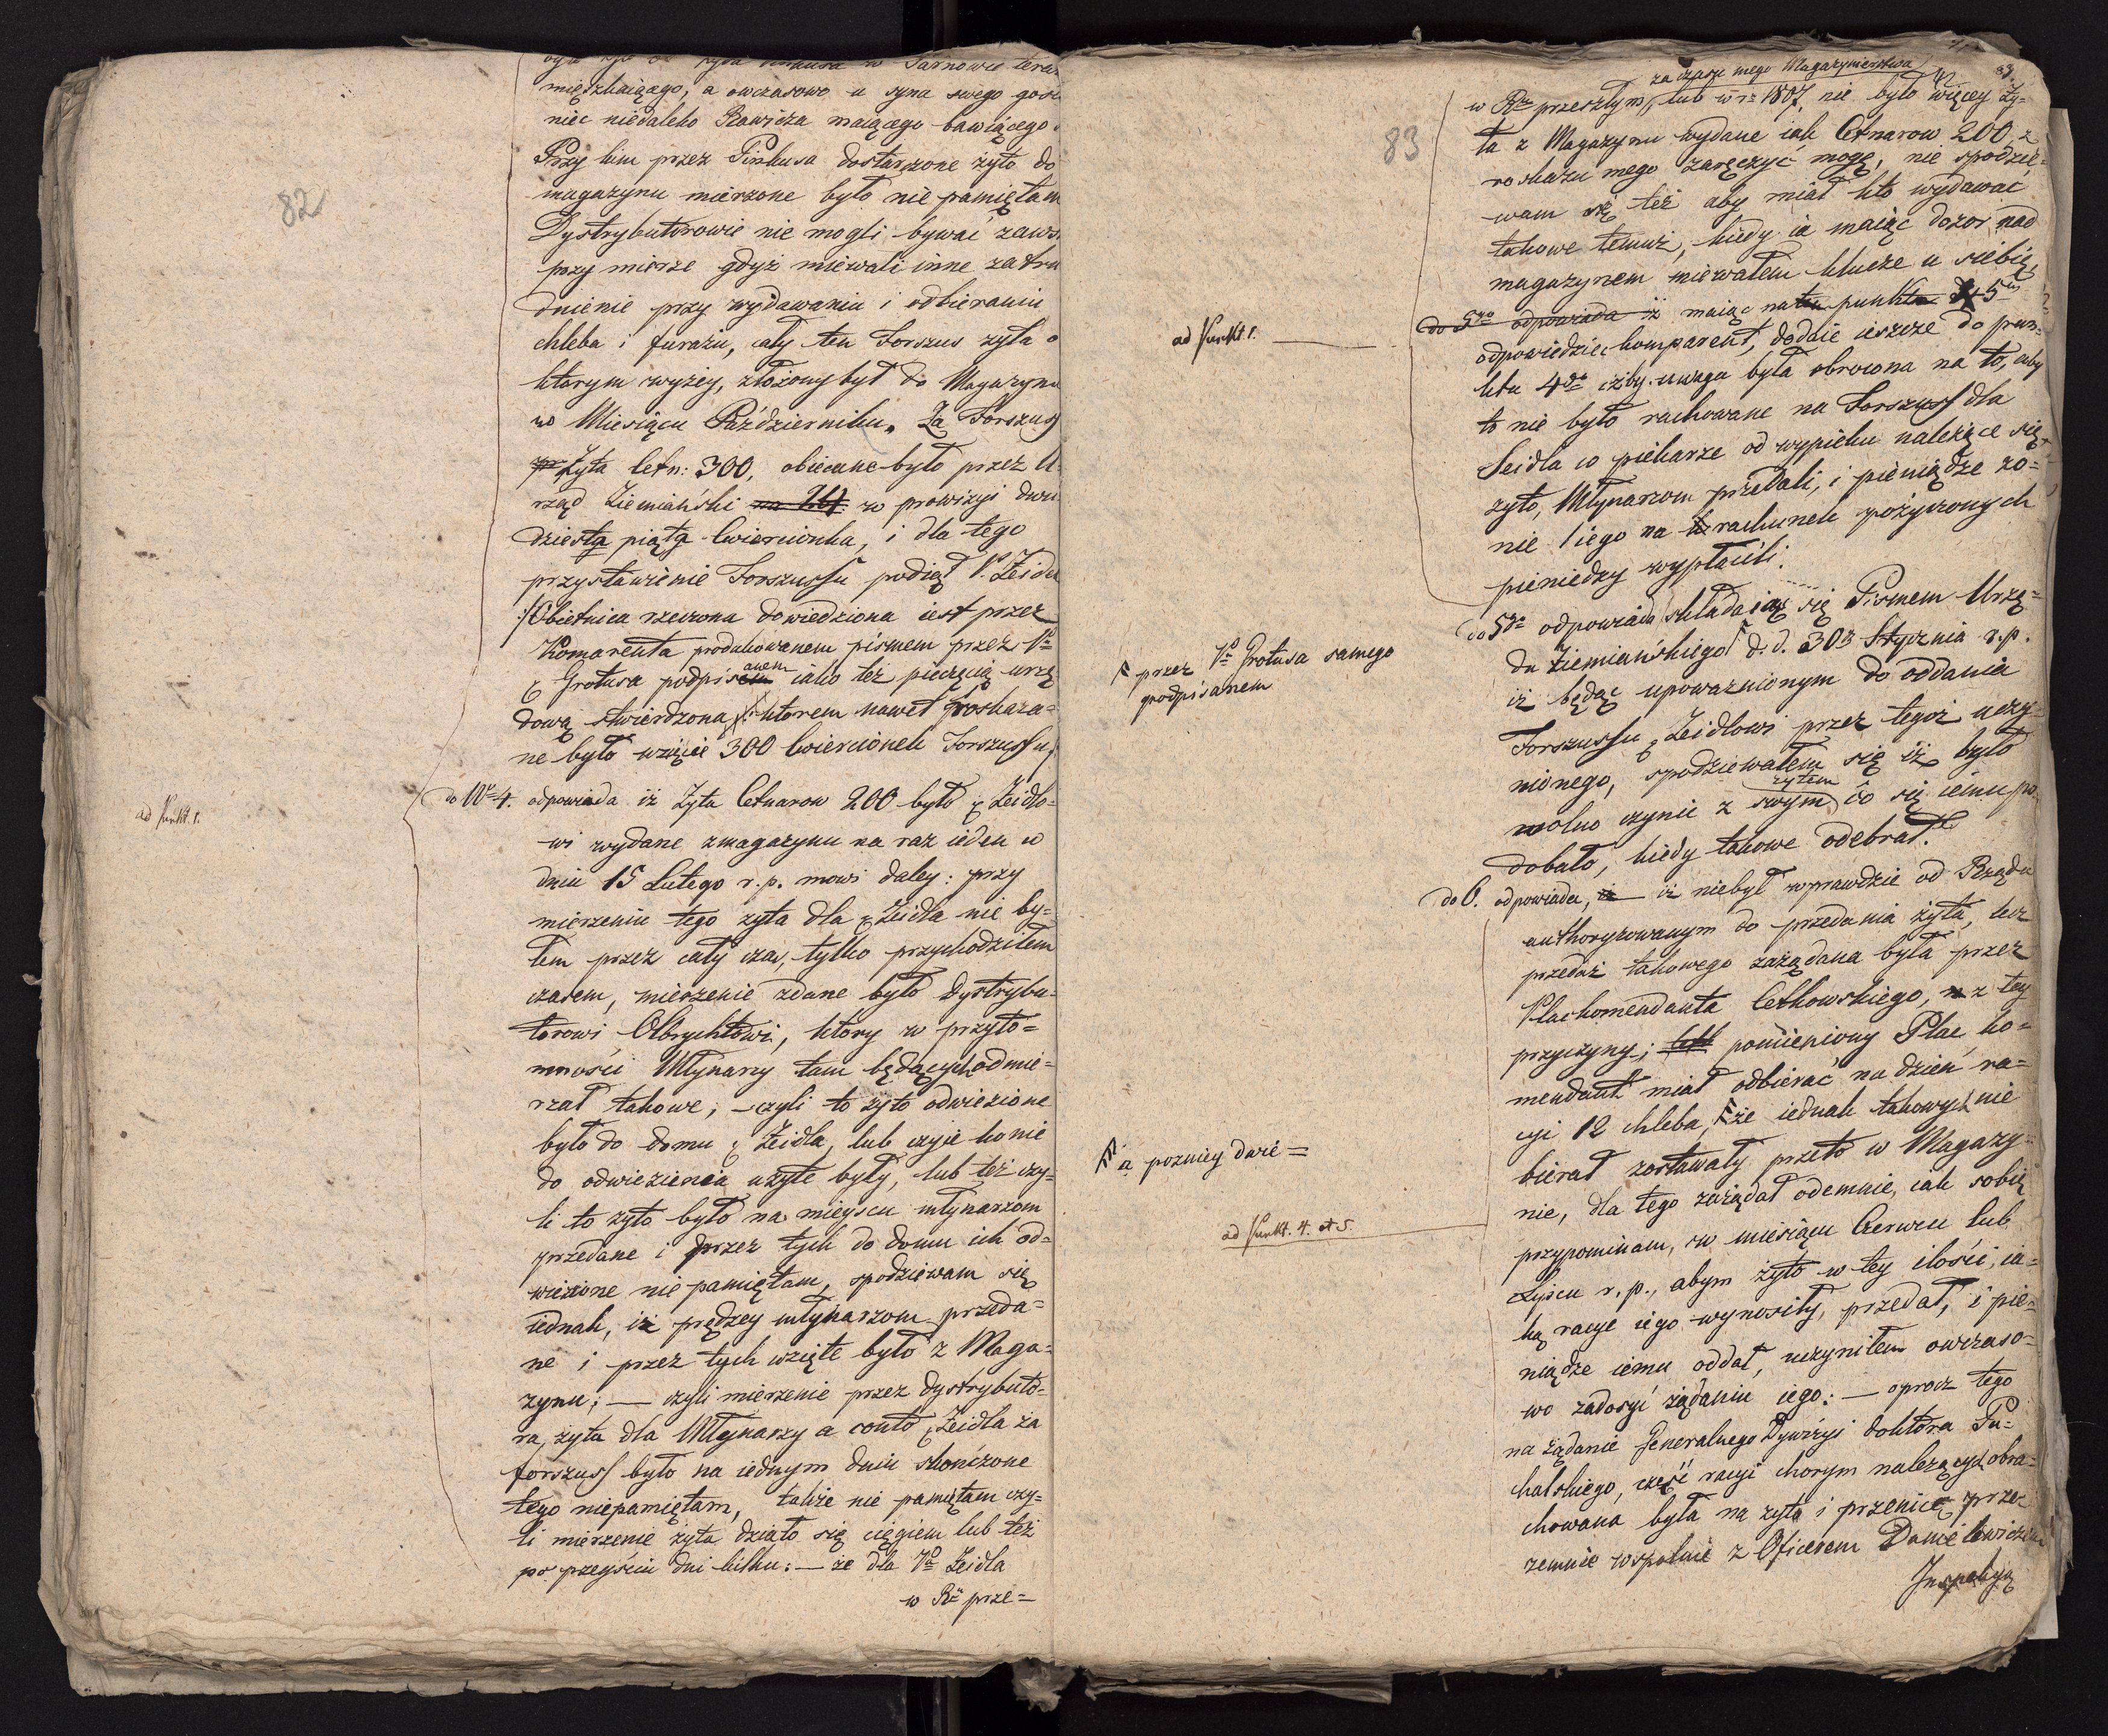 82
w Tarnowie teraz
mięszkaiącego, a owczasowo u syna swego gosc
niec niedaleko Rawicza maiącego bawiącego.
Przy kim przez Pinkusa dostarczone żyto do
magazynu mierzone było nie pamiętam
Dystrybutorowie nie mogli bywać zaws
przy mierze gdyż miewali inne zatru
dnienie przy wydawaniu i odbieraniu
chleba i furażu, cały ten Forszus żyta o
ktorym wyżey, złożony był do Magazynu
w Miesiącu Październiku. Za Forszus
żyta Cetn: 300, obiecane było przez U
rząd Ziemiański na 24 w prowizyi dwu
dziesta piąta cwierciowka, i dla tego
przystawienie Forszussu podiął P. Zeidel
:/Obietnica rzeczona dowiedziona iest przez
Komparenta produkowanem pismem przez P
Grotusa podpisanem iako też pieczęcią urzę
dową stwierdzona, ktorem nawet roskaza=
ne było wzięcie 300 cwierciowek Forszussu,
do No 4. odpowiada iż żyta Cetnarow 200 było Zeidlo=
ad Punkt. 1.
wi wydane z magazynu na raz ieden w
dniu 15 Lutego r. p. mowi daley: przy
mierzeniu tego żyta dla Zeidla nie by=
łem przez cały czas, tylko przychodziłem
czasem, mierzenie zdane było Dystrybu=
torowi Olbrychtowi, ktory w przyto=
mności Młynarzy tam będących odmie=
rzał takowe; — czyli to żyto odwiezione
było do domu Zeidla, lub czyie konie
do odwiezienia użyte były, lub też czy=
li to żyto było na mieyscu młynarzom
przedane i przez tych do domu ich od=
wiezione nie pamiętam, spodziewam się
iednak, iż prędzey młynarzom przeda=
ne i przez tych wzięte było z Maga=
zynu; — czyli mierzenie przez dystrybuto=
ra, żyta dla Młynarzy a conto Zeidla za
forszuss było na iednym dniu skończone
tego niepamiętam, także nie pamiętam czy=
li mierzenie żyta działo się ciągiem lub też
po przeyściu dni kilku: — że dla P Zeidla
w Ru prze=
83
83.
za czasu mego Magazynierstwa
w Rku przeszłym, lub w r. 1807, nie było więcey ży=
ta z Magazynu wydane iak Cetnarow 200 z
roskazu mego zaręczyć mogę, nie spodzie=
wam się też aby miał kto wydawać
takowe temuż, kiedy ia maiąc dozor nad
magazynem miewałem klucze u siebie,
do 5go odpowiada iż maiąc na ten punkta 5ty
ad Punkt. 1.
odpowiedzieć komparent, dodaie ieszcze do pun=
ktu 4go iżby uwaga była obrocona na to, aby
to nie było rachowane na Forszuss dla
Seidla co piekarze od wypieku należące się
żyto, Młynarzom przedali, i pieniądze zo=
nie iego na rachunek pożyczonych
pieniedzy wypłacili.
do 5go odpowiada składaiąc się Pismem Urzę=
du Ziemiańskiego d. d. 30 Stycznia r. p.
przez P. Grotusa samego
podpisanem
iż będąc upoważnionym do oddania
Forszussu Zeidlowi przez tegoż uczy=
nionego, spodziewałem się iż było
wolno czynić z swym żytem co się iemu po=
dobało, kiedy takowe odebrał.
do 6. odpowiada, iż niebył wprawdzie od Rządu
authoryzowanym do przedania żyta, lecz
przedaż takowego zażądana była przez
Plackomendanta Cetkowskiego, z tey
przyczyny; pomieniony Plac ko=
mendant miał odbierać na dzień ra=
cyi 12 chleba, że iednak takowych nie
a pozniey dwie =
bierał zostawały przeto w Magazy=
nie, dla tego zażądał odemnie, iak sobie
ad Punkt. 4. et 5.
przypominam, w miesiącu Czerwcu lub
Lipcu r. p., abym żyto w tey ilości, ia=
ką racye iego wynosiły, przedał, i pie=
niądze iemu oddał, uczyniłem owczaso=
wo zadosyć żądaniu iego: — oprocz tego
na żądanie Generalnego Dywizyi doktora Pu=
chalskiego, część racyi chorym należących obra=
chowana była na żyto i przenicę przez
zemnie wspolnie z Oficerem Danielewiczem
Inspekcyą